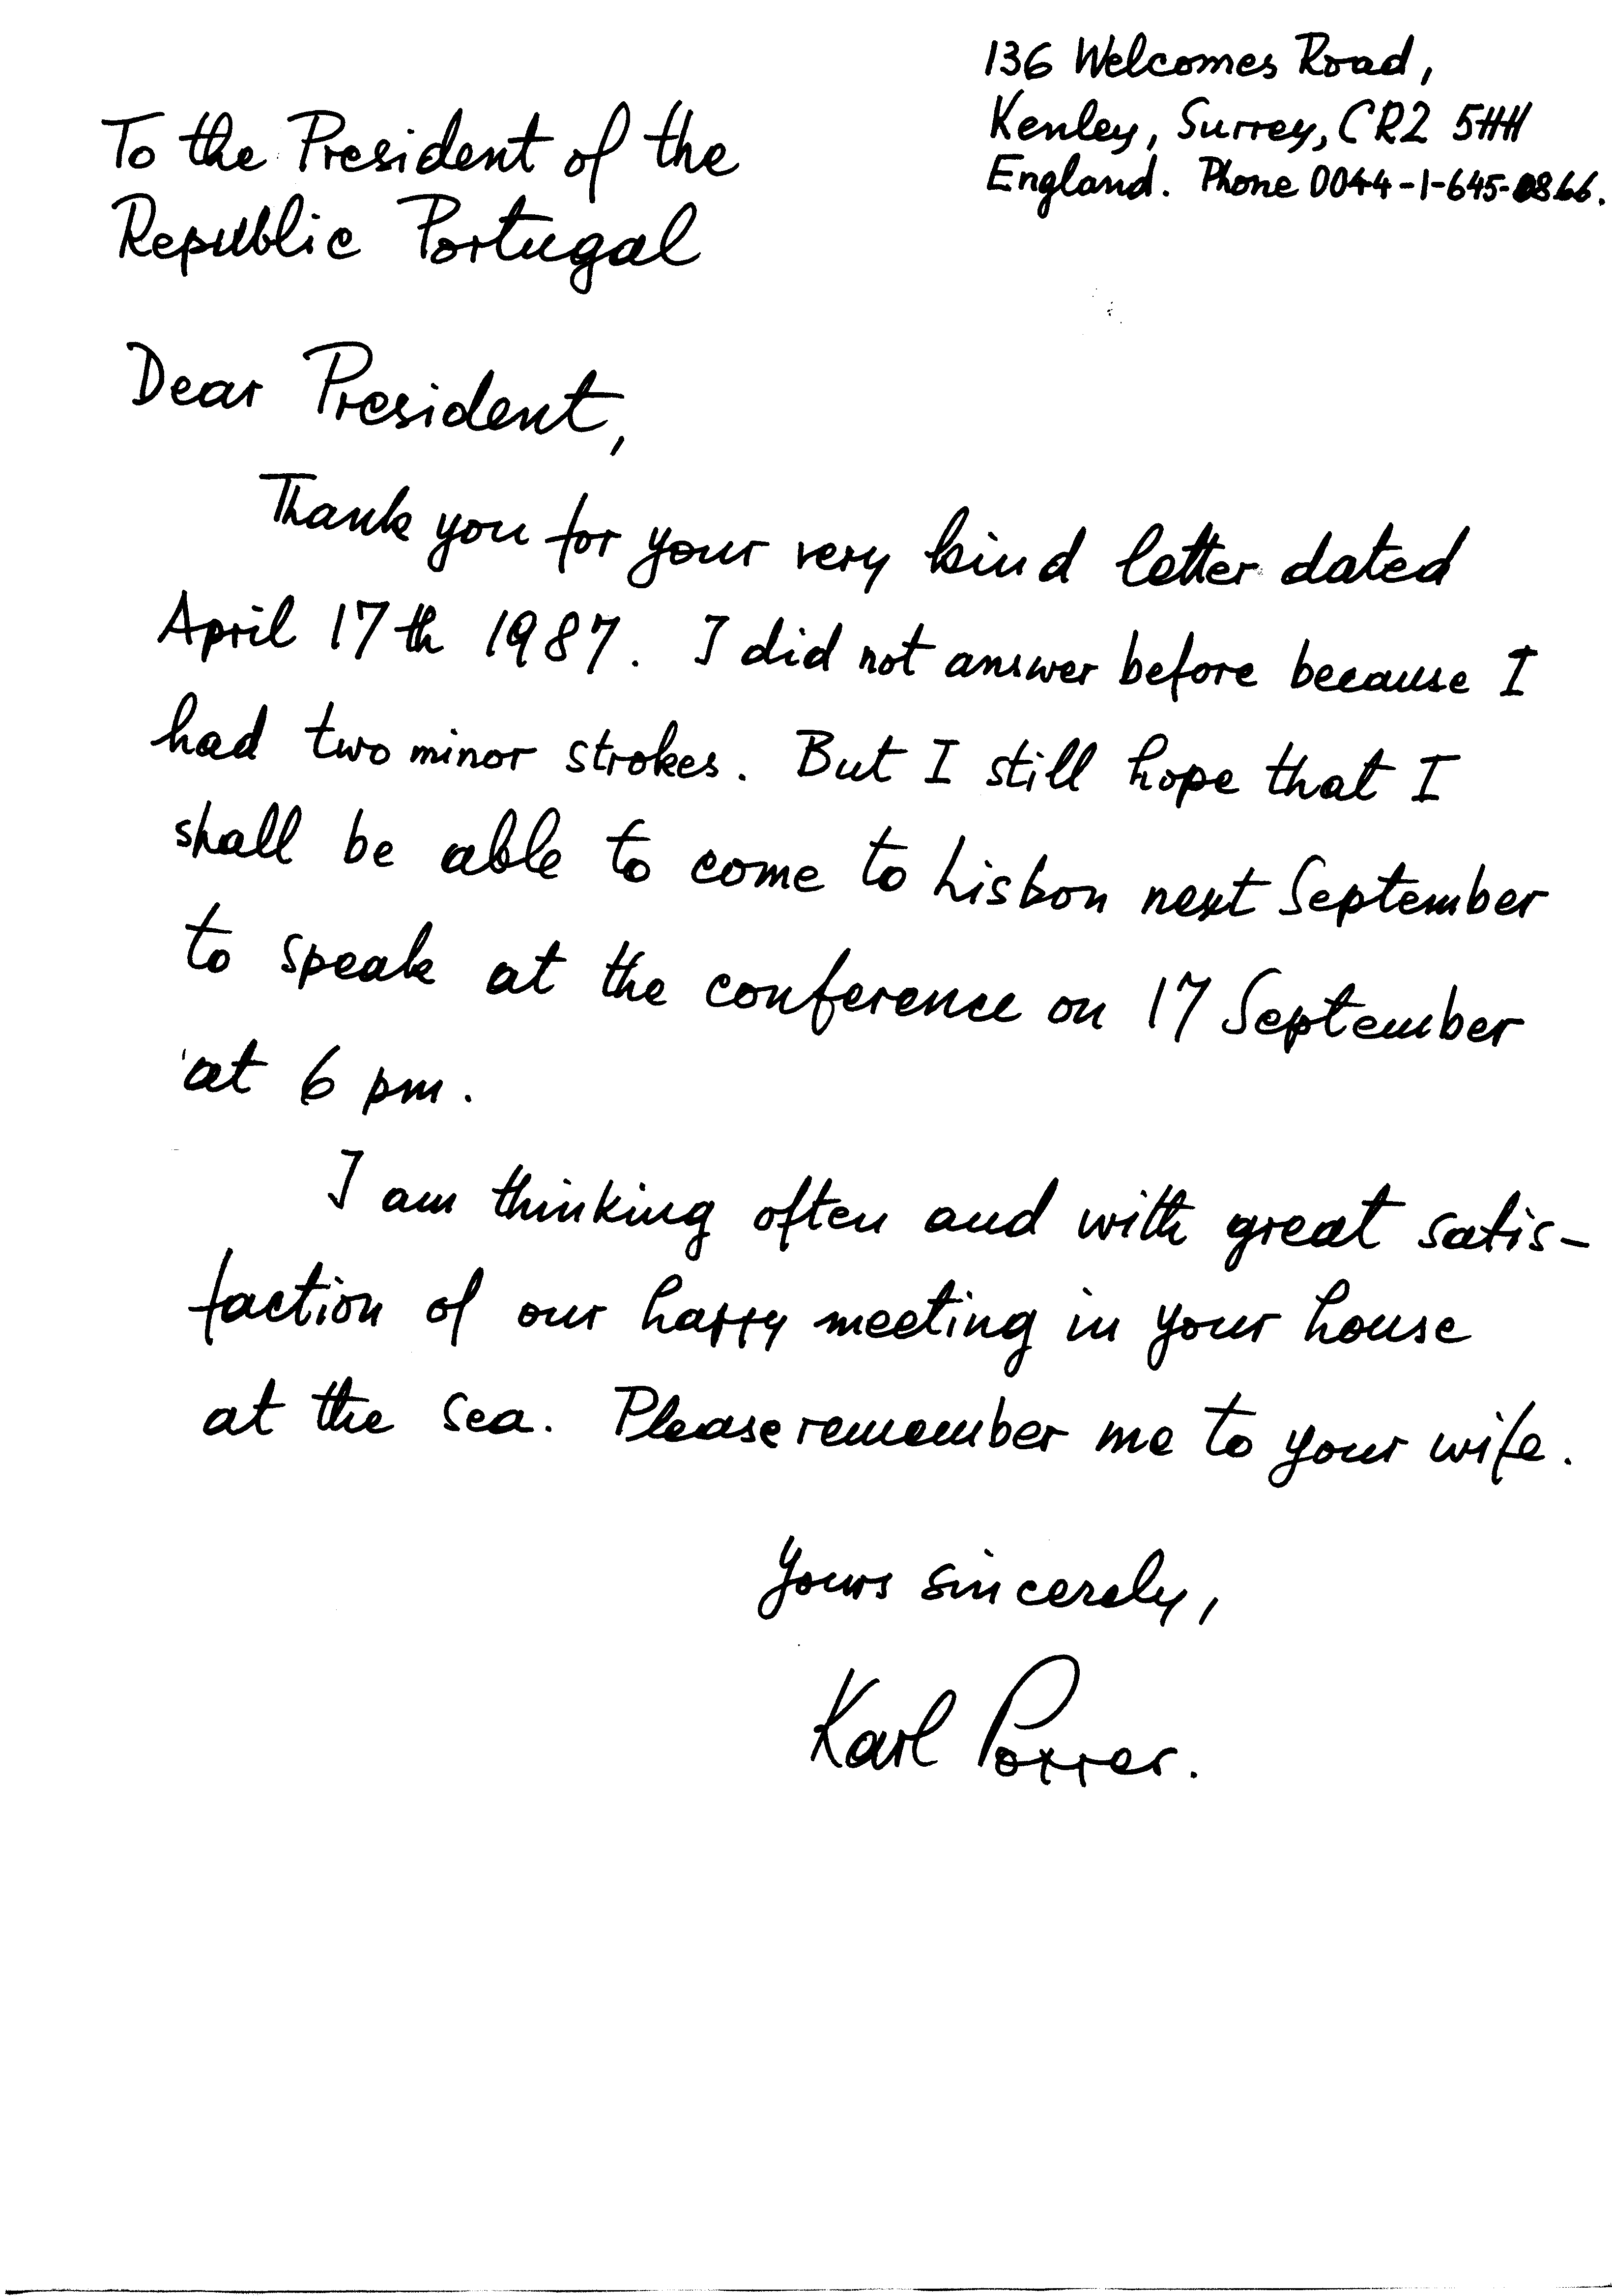 136 Welcomes Road,
Kenley, Surrey, CR2 5HH
England. Phone 0044-1-645-0866.
To the President of the
Republic Portugal
Dear President,
Thank you for your very kind letter dated
April 17th 1987. I did not answer before because I
had two minor strokes. But I still hope that I
shall be able to come to Lisbon next September
to speak at the conference on 17 September
at 6 pm.
I am thinking often and with great satis-
faction of our happy meeting in your house
at the sea. Please remember me to your wife.
Yours sincerely,
Karl Popper.